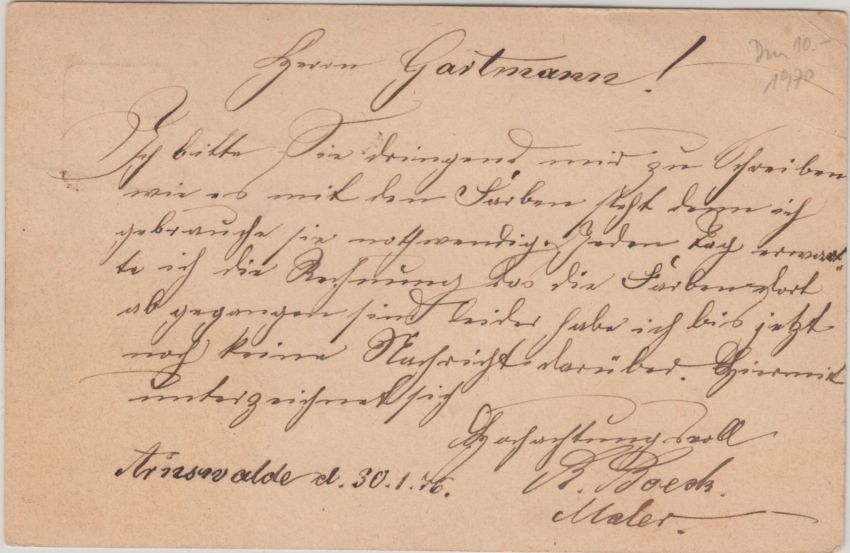 Herrn Gartmann!
Dm 10.-
1970
Ich bitte Sie dringend mir zu Schreiben
wie es mit den Farben steht denn ich
gebrauche sie nothwendig. Jeden Tag erwar-
te ich die Rechnung das die Farben dort
ab gegangen sind leider habe ich bis jetzt
noch keine Nachricht darüber. Hiermit
unterzeichnet sich
Hochachtungsvoll
Arnswalde d. 30.1.76.
R. Boeck.
Maler.